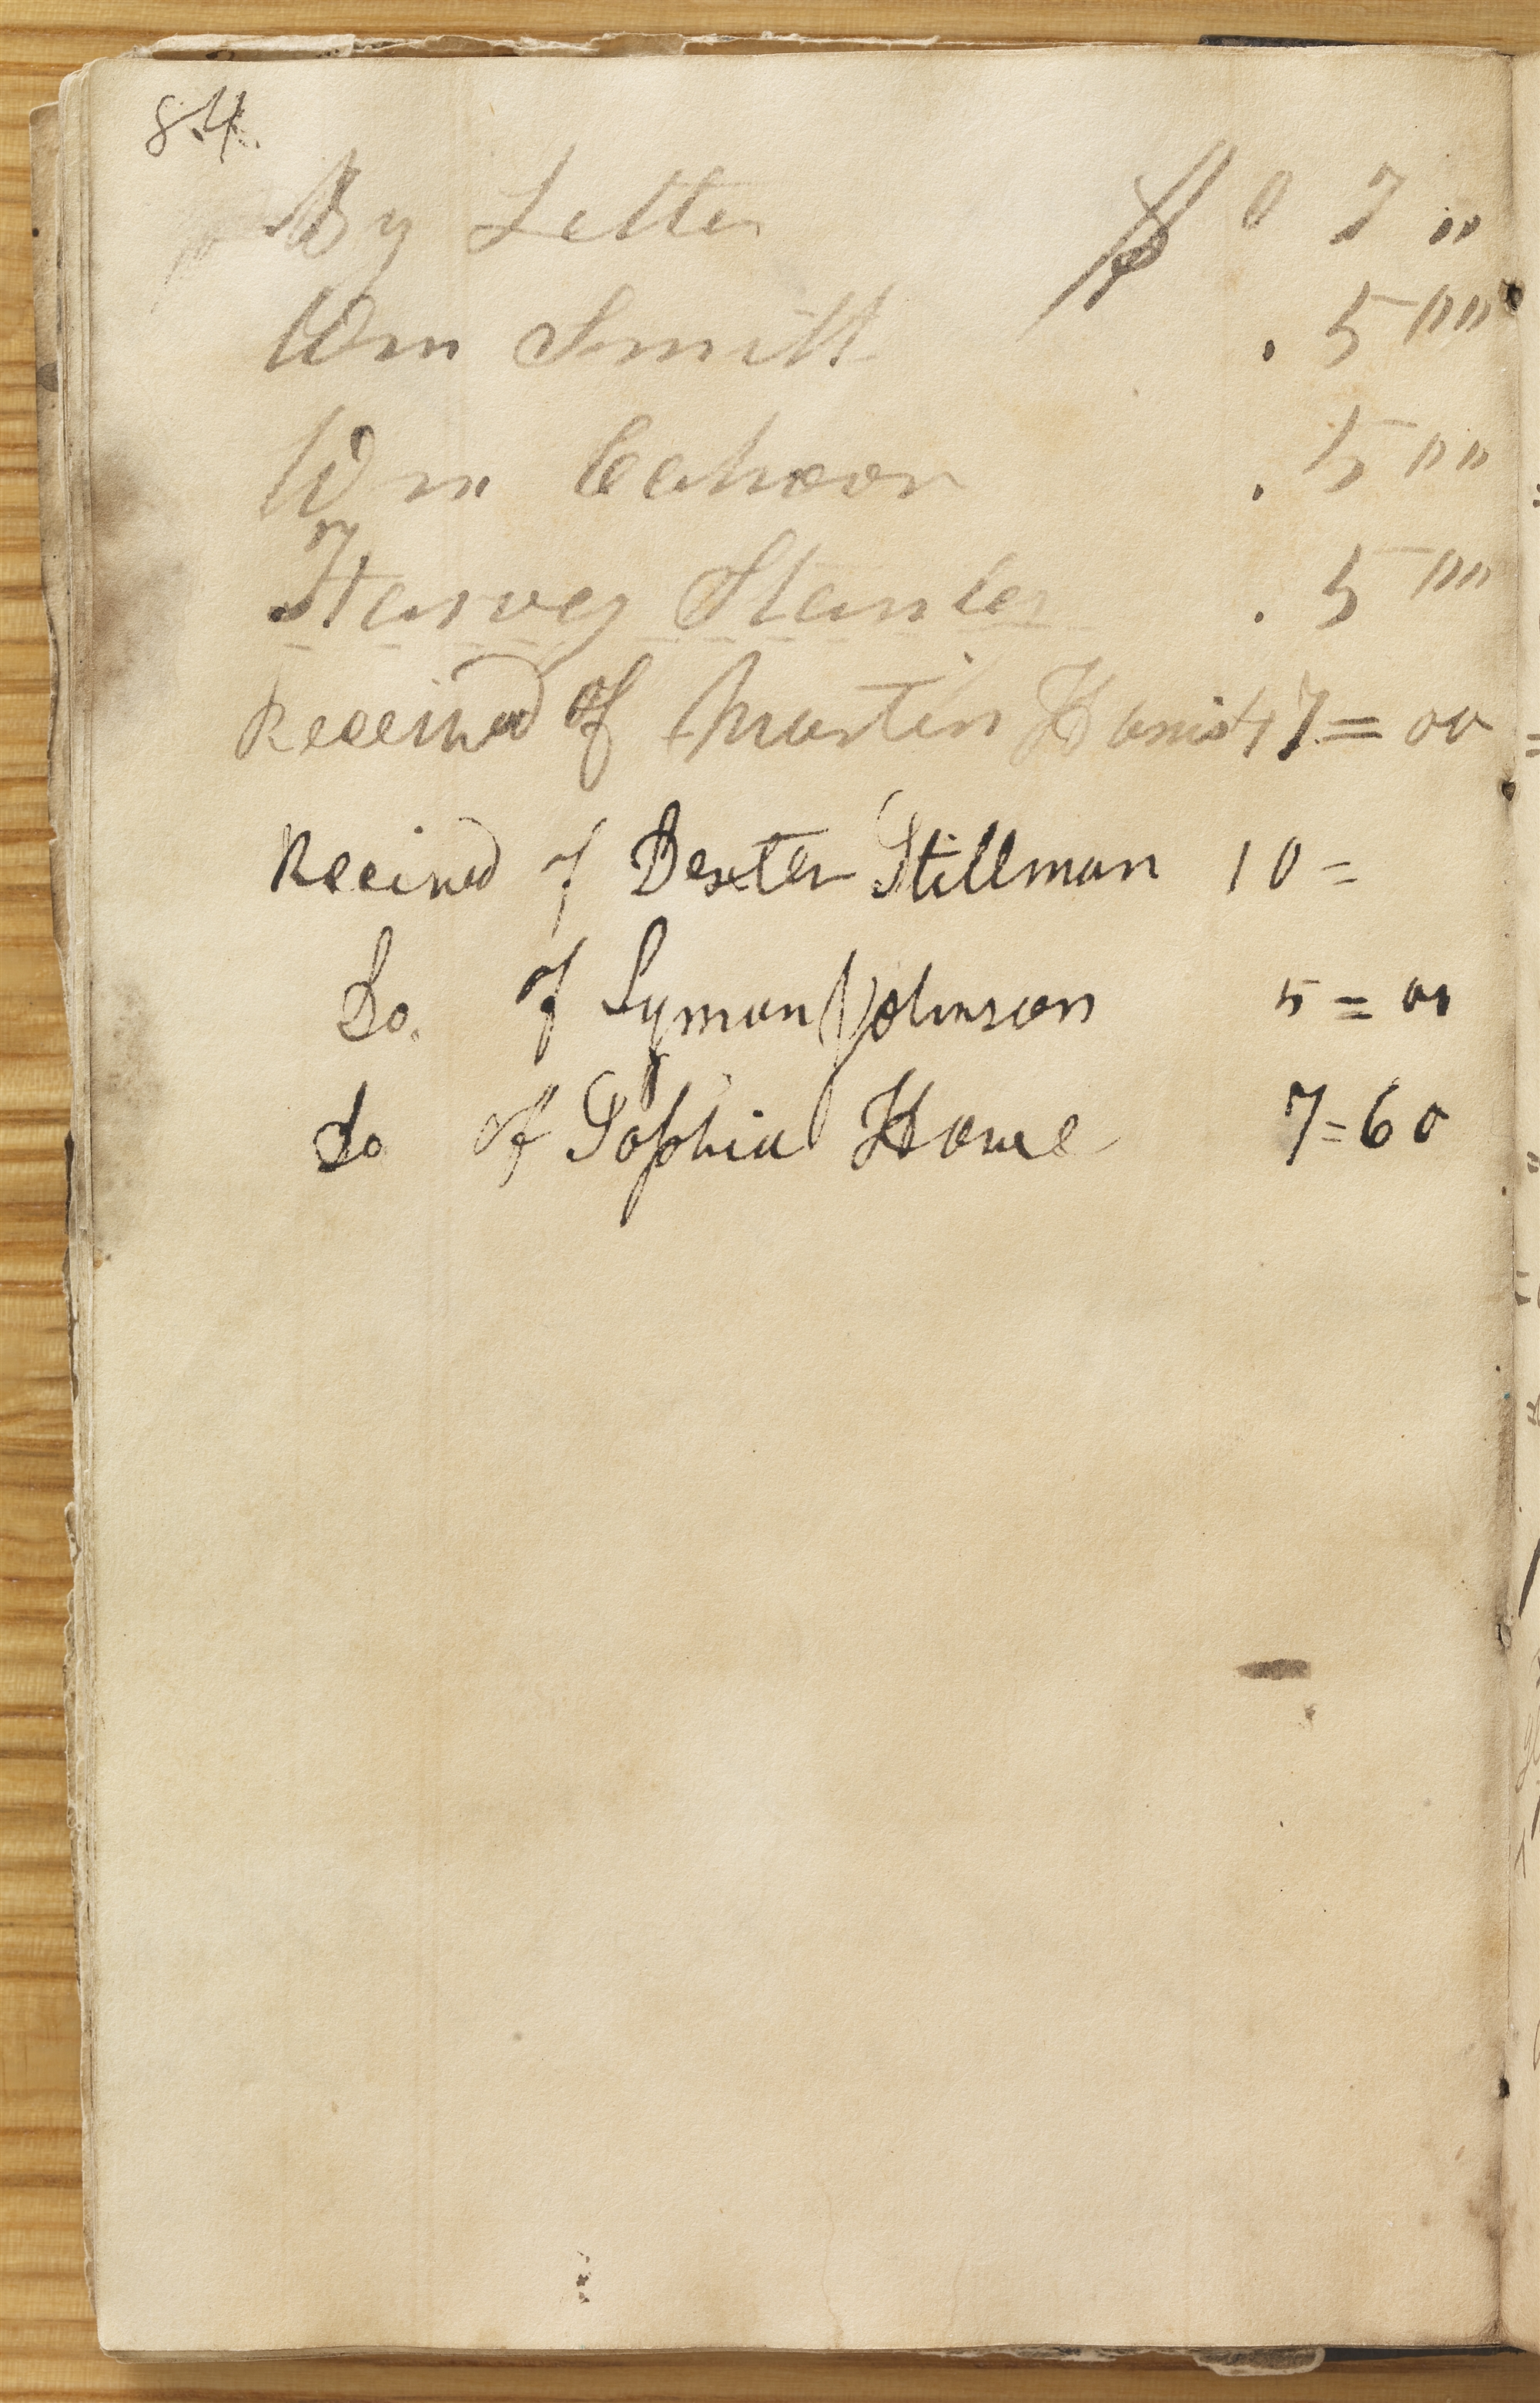 84.
By Letter $ 0 7 "
Wm Smith . 5 ""
Wm Cahoon . 5 ""
Harvey Stanley . 5 ""
Received of Martin Harris 47 = 00
Received of Dexter Stillman 10 =
Do. of Lyman Johnson 5 = 00
do of Sophia Howe 7=60